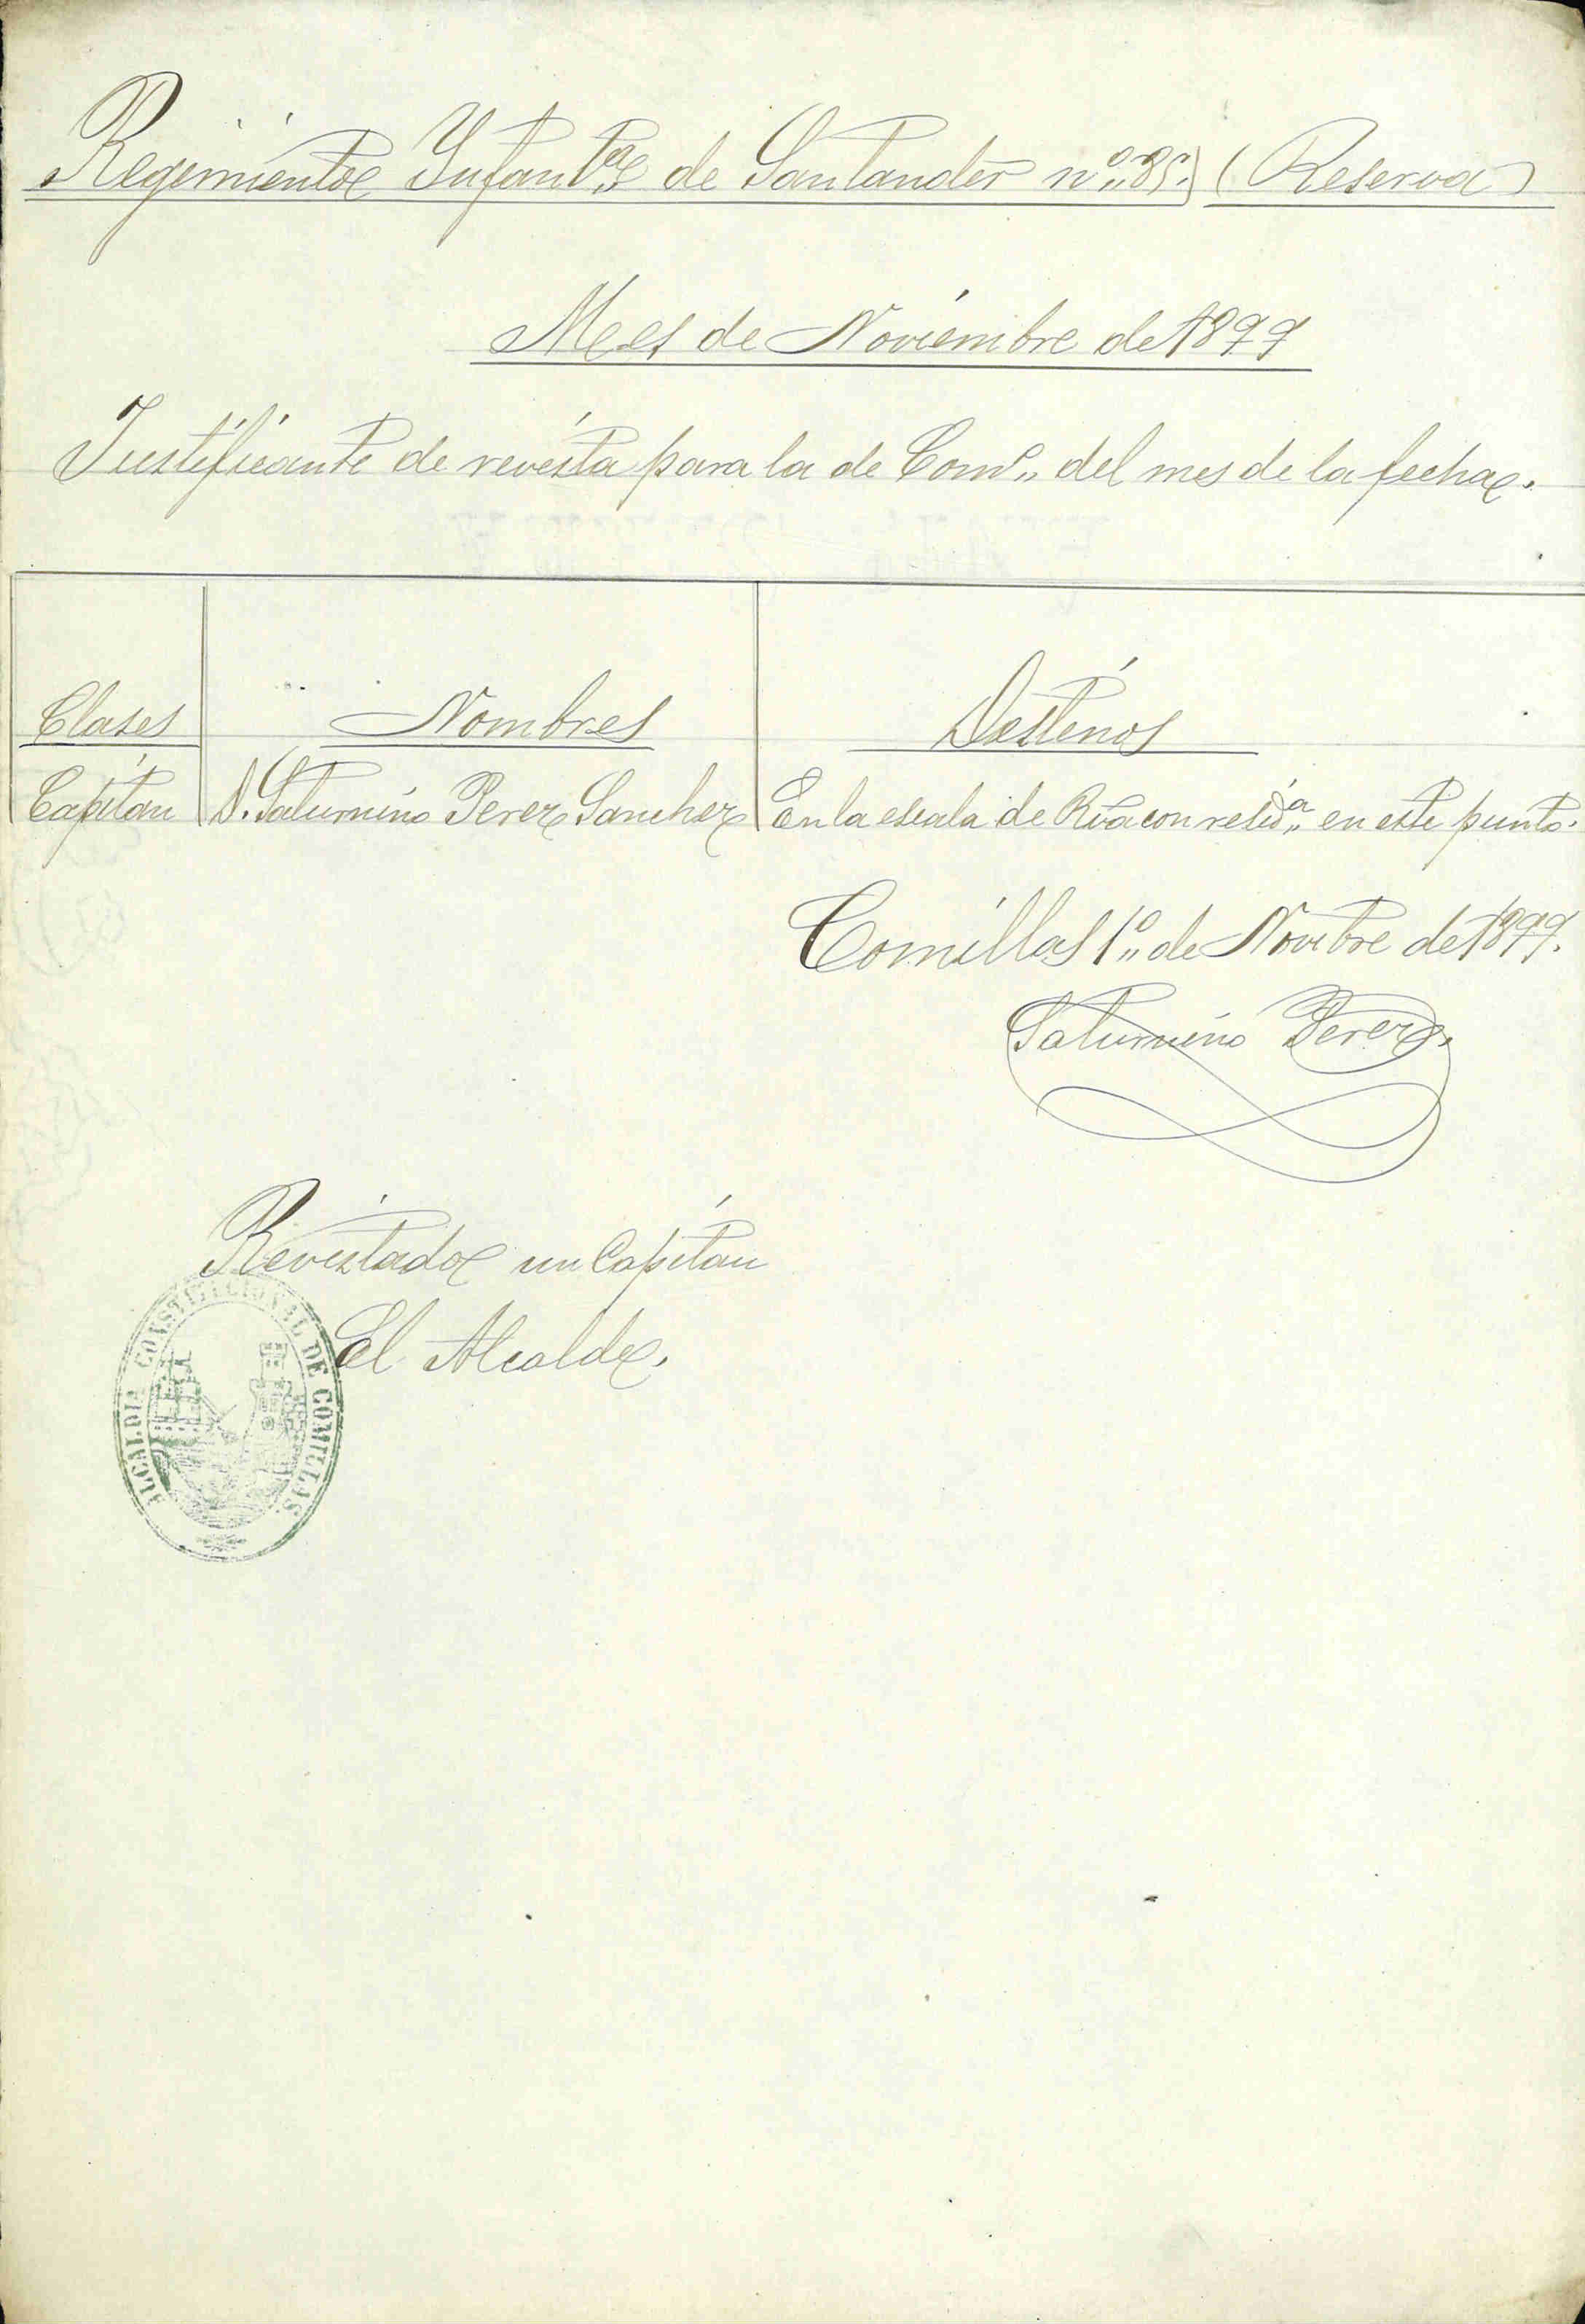 Regimiento Ynfant.ª de Santander nº 85. (Reserva)
Mes de Noviembre de 1899
Justificante de revista para la de Comº del mes de la fecha.
Clases Nombres Destinos
Capitan D. Saturnino Perez Sanchez En la escala de Rva con resid.ª en este punto.
Comillas 1º de Novbre de 1899.
Saturnino Perez.
Revistado un Capitan
El Alcalde.
ALCALDIA CONSTITUCIONAL DE COMILLAS